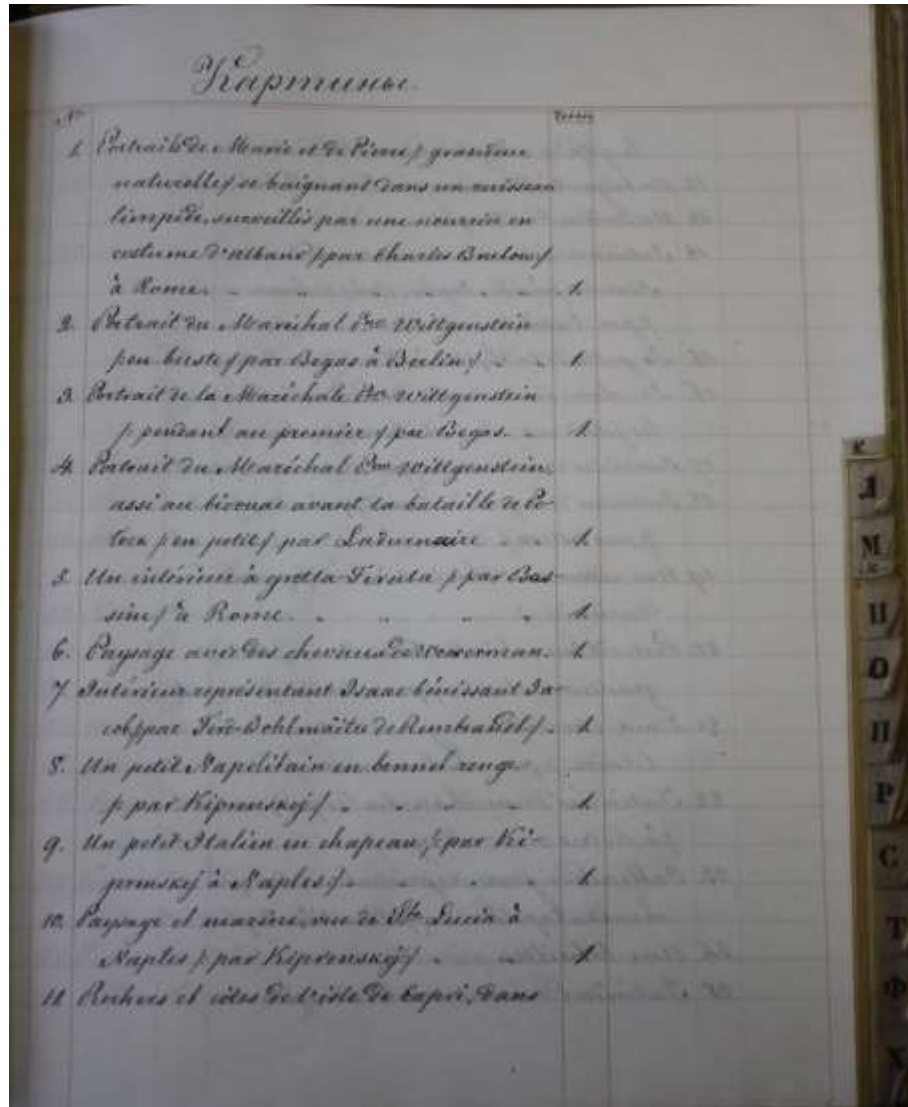 Картины.
№
1. Portraits de Marie et de Pierre (grandeur
naturelle) se baignant dans un ruisseau
limpide, surveillés par une nourrice en
costume d'Albano (par Charles
à Rome. 1.
2. Portrait du Maréchal Pce Wittgenstein
(en buste) par Begas à Berlin) 1.
3. Portrait de la Maréchale Wittgenstein
( pendant au premier) par Begas. 1.
4. Portrait du Maréchal Pce Wittgenstein,
assi au bivouac avant la bataille de Po-
lock (en petit) par Ladurnaire 1.
5. Un intérieur à grotta-Ferrata (par Bas-
sine) à Rome. 1.
6. Paysage avec des chevaux de 1.
7. Intérieur représentant Isaac bénissant Ja-
cob (par de Rembrandt). 1.
8. Un petit Napolitain en bonnet rouge
( par Kiprenskÿ) 1.
9. Un petit Italien en chapeau ( par Ki-
prenskÿ à Naples) 1.
10. Paysage et marine, vue de Ste Lucia à
Naples ( par Kiprenskÿ) 1.
11. Rochers et côtes de l'isle de Capri, dans
К
Л
М
Н
О
П
Р
С
Т
Ф
Х